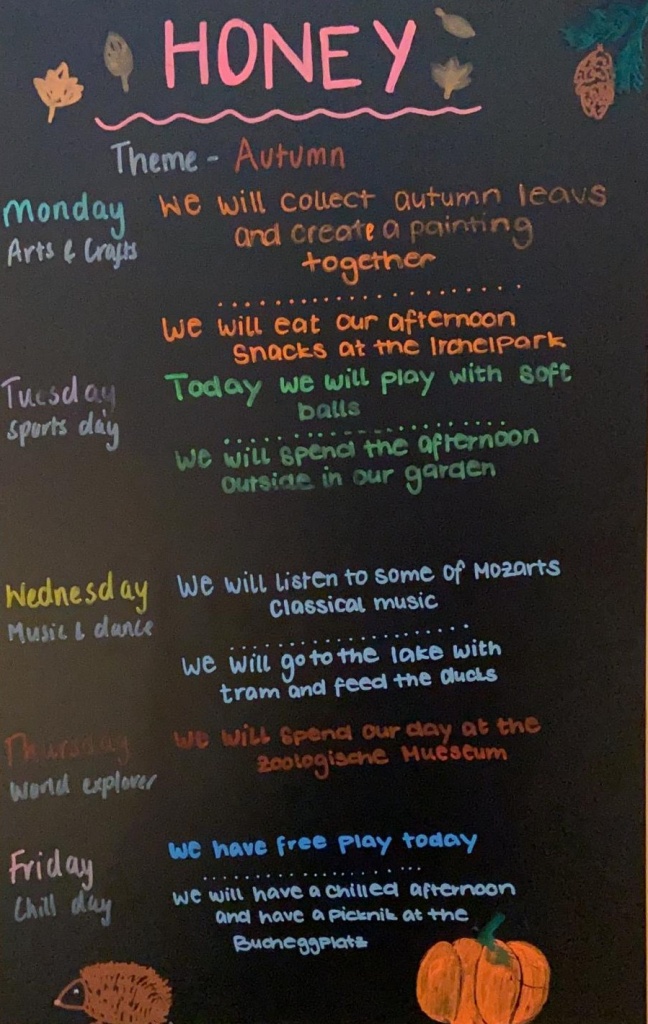 HONEY
Theme - Autumn
Monday
Arts & Crafts
We will collect autumn leavs
and create a painting
together
We will eat our afternoon
Snacks at the Irchelpark
Tuesday
sports day
Today we will play with soft
balls
We will spend the afternoon
outside in our garden
Wednesday
Music & dance
We will listen to some of Mozarts
Classical music
We will go to the lake with
tram and feed the ducks
Thursday
World explorer
We will spend our day at the
Zoologische Mueseum
Friday
Chill day
We have free play today
We will have a chilled afternoon
and have a picknik at the
Bucheggplatz